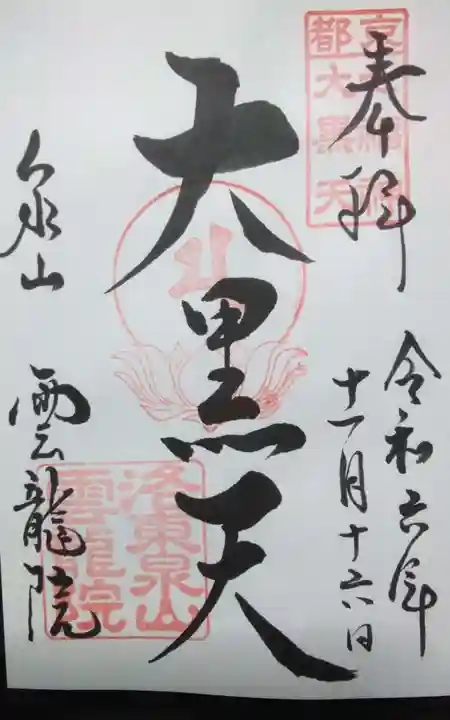 奉拝
令和六年
十一月十六日
大黒天
泉山
雲龍院
洛東泉山
雲龍院
大黒天